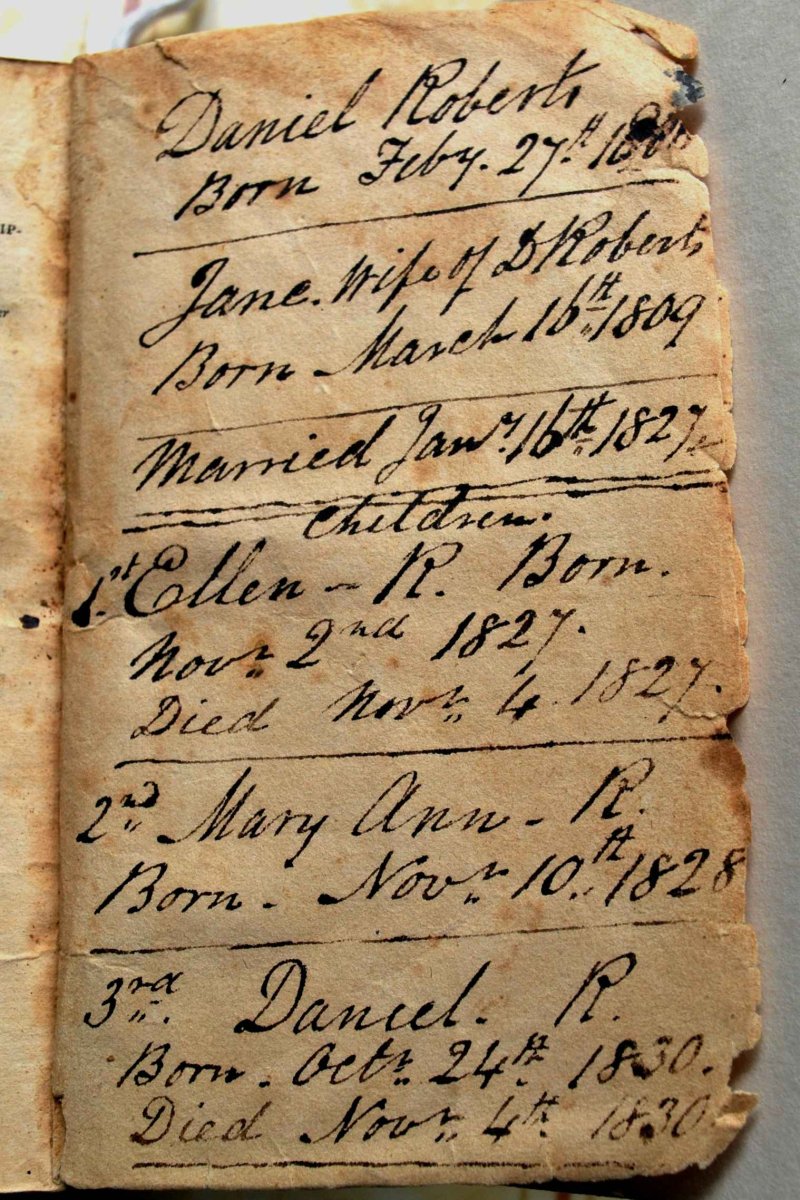 IP-
Daniel Roberts
Born Feby. 27th
Jane. Wife of D Roberts
Born March 16th 1809
Married Jany. 16th 1827.
Children.
1st Ellen - R. Born.
Novr. 2nd 1827.
Died Novr. 4. 1827.
2nd Mary Ann - R.
Born. Novr. 10th 1828
3rd Daniel. R.
Born. Octr. 24th 1830.
Died Novr. 4th 1830